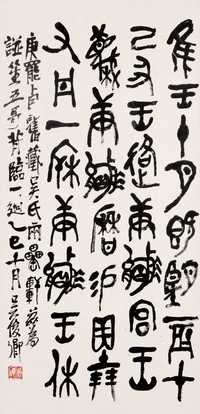 隹王十月既望辰才
己丑王庚嬴宮王
蔑庚嬴曆易貝
又丹一庚嬴王休
庚罷卣舊藏吳氏兩罍軒茲為
笙五哥臨一通乙巳十月吳俊卿